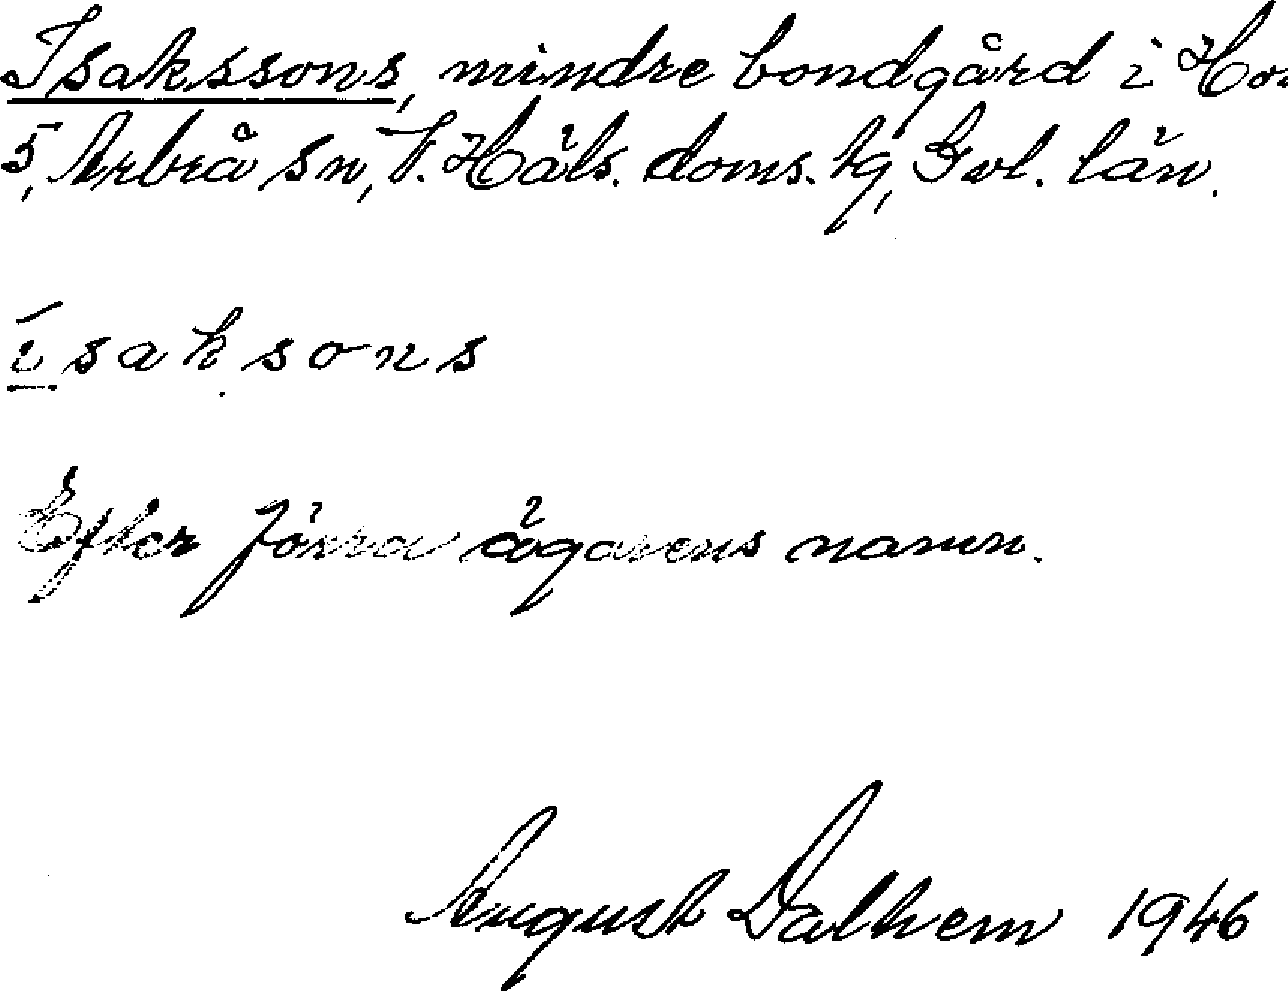 Isakssons, mindre bondgård i
5, Arbrå sn, V. Häls. doms. tg, Gvl. län.
isaksons
Efter förra ägarens namn.
August Dalhem 1946